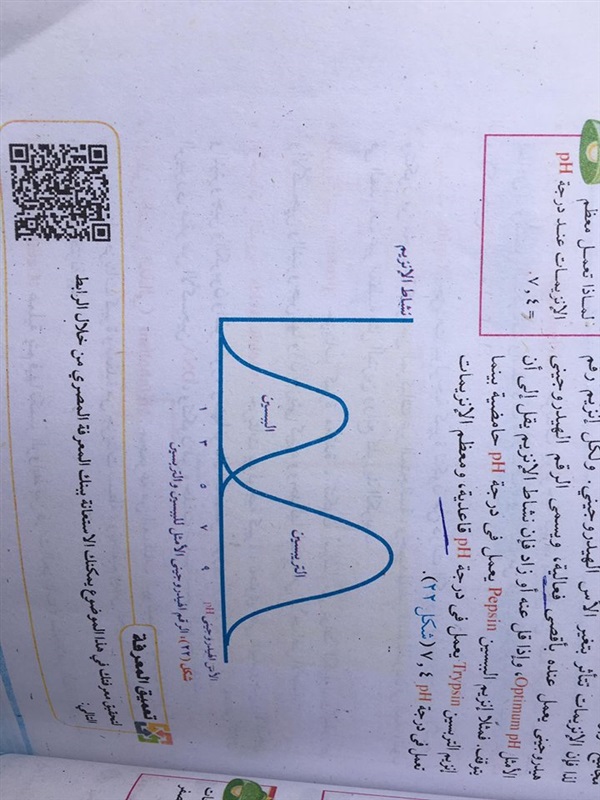 لماذا تعمل معظم
الإنزيمات عند درجة pH
= ٧,٤.
لذا فإن الإنزيمات تتأثر بتغير الأس الهيدروجيني. ولكل إنزيم رقم
هيدروجيني يعمل عنده بأقصى فعالية، ويسمى الرقم الهيدروجيني
الأمثل Optimum pH، وإذا قل عنه أو زاد فإن نشاط الإنزيم يقل إلى أن
يتوقف. فمثلًا إنزيم الببسين Pepsin يعمل فى درجة pH حامضية بينما
إنزيم التربسين Trypsin يعمل فى درجة pH قاعدية، ومعظم الإنزيمات
تعمل فى درجة pH ٧,٤ (شكل ٢٢).
نشاط الإنزيم
الببسين
التربسين
١ ٣ ٥ ٧ ٩
الأس الهيدروجينى pH
شكل (٢٢): الرقم الهيدروجينى الأمثل للببسين والتربسين
تعميق المعرفة
لتعميق معرفتك في هذا الموضوع يمكنك الاستعانة ببنك المعرفة المصري من خلال الرابط
التالي: